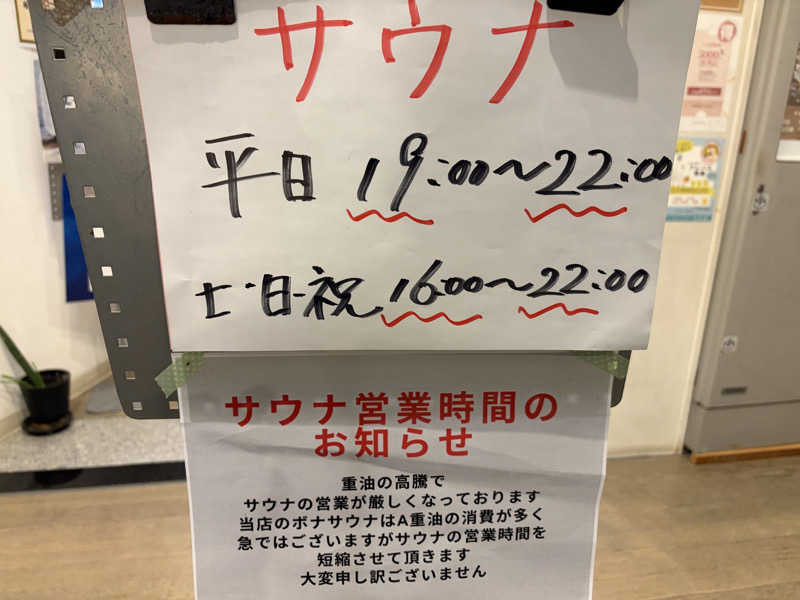 サウナ
平日 19:00～22:00
土・日・祝 16:00～22:00
サウナ営業時間の
お知らせ
重油の高騰で
サウナの営業が厳しくなっております
当店のボナサウナはA重油の消費が多く
急ではございますがサウナの営業時間を
短縮させて頂きます
大変申し訳ございません